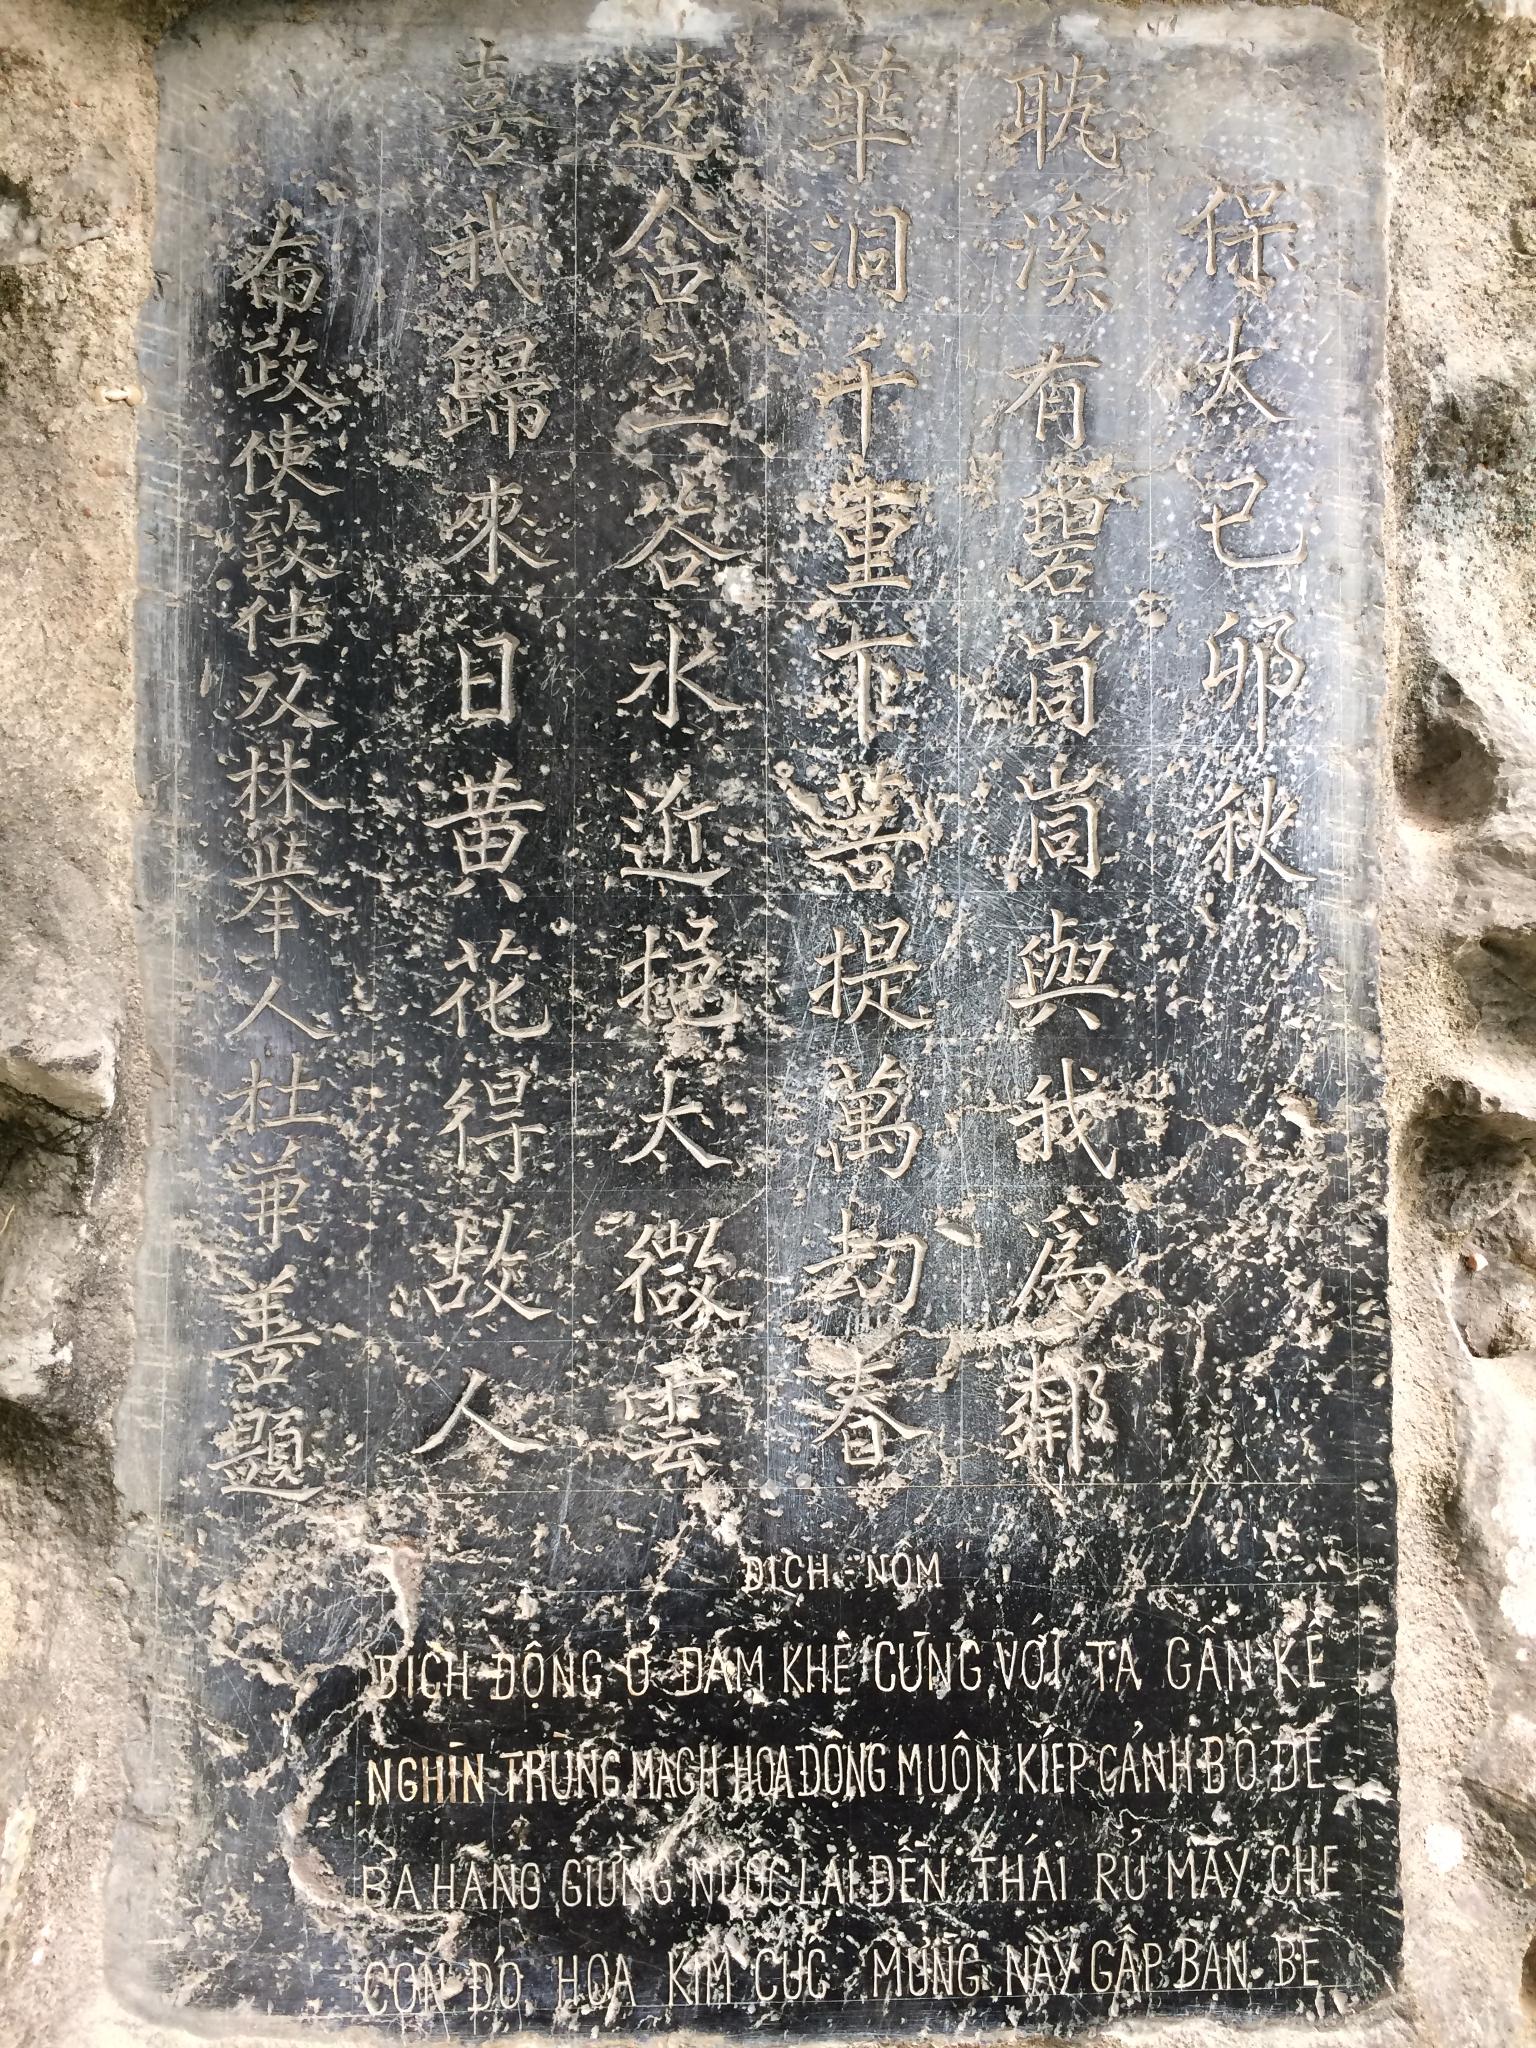 保大己卯秋
耽溪有碧峝峝與我為鄰
華洞千重下菩提萬劫春
遠含三谷水近挹太微雲
喜我歸來日黃花得故人
布政使致仕双林舉人杜兼善題
DỊCH - NÔM
BÍCH ĐỘNG Ở ĐAM KHÊ CÙNG VỚI TA GẦN KỀ
NGHÌN TRÙNG MẠCH HOA ĐỘNG MUÔN KIẾP CẢNH BỒ ĐỀ
BA HANG GIƯNG NƯỚC LẠI ĐẾN THAI RỦ MÂY CHE
CÒN ĐÓ HOA KIM CÚC MỪNG NAY GẶP BẠN BÈ